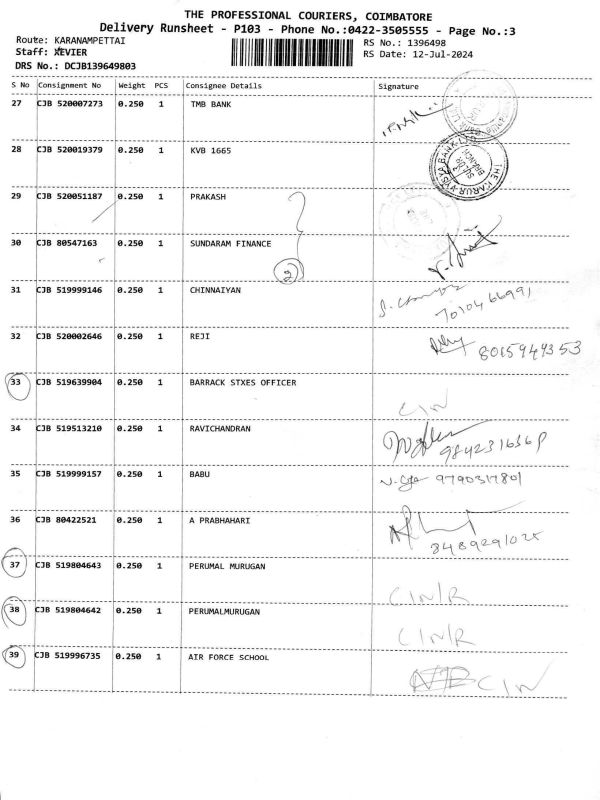 THE PROFESSIONAL COURIERS, COIMBATORE
Delivery Runsheet - P103 - Phone No.:0422-3505555 - Page No.:3
Route: KARANAMPETTAI
RS No.: 1396498
Staff: XEVIER
RS Date: 12-Jul-2024
DRS No.: DCJB139649803
S No Consignment No Weight PCS Consignee Details Signature
27 CJB 520007273 0.250 1 TMB BANK
28 CJB 520019379 0.250 1 KVB 1665
THE KARUR VYSYA BANK LTD
SULUR
BRANCH
29 CJB 520051187 0.250 1 PRAKASH
30 CJB 80547163 0.250 1 SUNDARAM FINANCE
2
31 CJB 519999146 0.250 1 CHINNAIYAN
32 CJB 520002646 0.250 1 REJI 8015949353
33 CJB 519639904 0.250 1 BARRACK STXES OFFICER CIN
34 CJB 519513210 0.250 1 RAVICHANDRAN
35 CJB 519999157 0.250 1 BABU 9790317801
36 CJB 80422521 0.250 1 A PRABHAHARI 8489291025
37 CJB 519804643 0.250 1 PERUMAL MURUGAN CIN/R
38 CJB 519804642 0.250 1 PERUMALMURUGAN CIN/R
39 CJB 519996735 0.250 1 AIR FORCE SCHOOL CIN